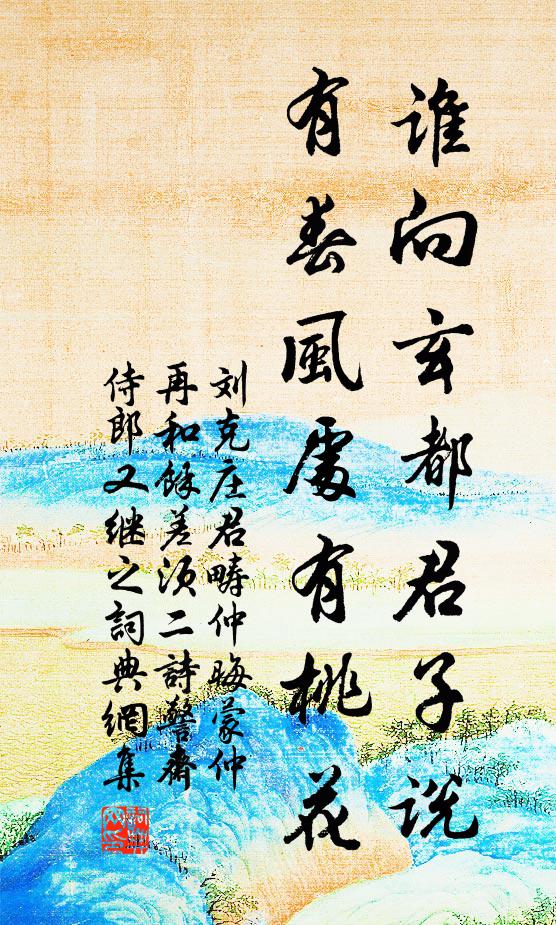 谁向玄都君子说
有春風處有桃花
刘克庄君畴仲晦蒙仲
再和馀差须二詩警齋
侍郎又继之詞典網集